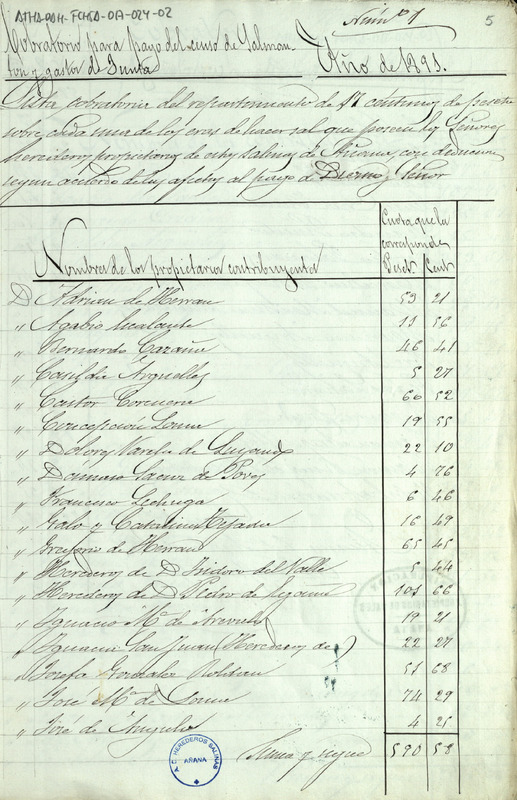 ATHA-DAH-FCHSA-OA-024-02
Núm.º 1
5
Cobratorio para pago del censo de Salinas
y gastos de Junta
Año de 1891.
Lista cobratoria del repartimiento de 17 centimos de peseta
sobre cada una de las eras de hacer sal que poseen los Señores
herederos propietarios de estas salinas de Añana, con
segun acuerdo de al pago de Diezmo y
Cuota que la
corresponde
Nombres de los propietarios contribuyentes
Peset.s Cent.s
D. Adrian de Herran 53 21
" Agabio 11 56
" Bernardo 46 41
" Casilda Arguelles 5 27
" Castor Corcuera 60 52
" Concepción 19 55
" Dolores Varela de 22 10
" Dámaso Saenz de 4 76
" Francisco Lechuga 6 46
" Galo y Catalina Tejada 16 49
" Gregorio de Herran 65 45
" Herederos de D. Isidoro del Valle 5 44
" Herederos de D. Pedro de 101 66
" Ignacio M.ª de 19 21
" Ignacio San Juan (Herederos de) 22 27
" Josefa Gonzalez Roldan 51 68
" José M.ª de 74 29
" José de Angulo 4 25
Suma y sigue 590 58
A.C. HEREDEROS SALINAS
AÑANA